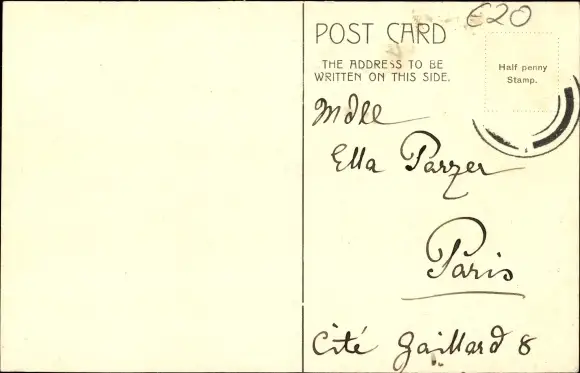 €20
POST CARD
THE ADDRESS TO BE
WRITTEN ON THIS SIDE.
Half penny
Stamp.
Mdlle
Ella Parzer
Paris
Cité Gaillard 8